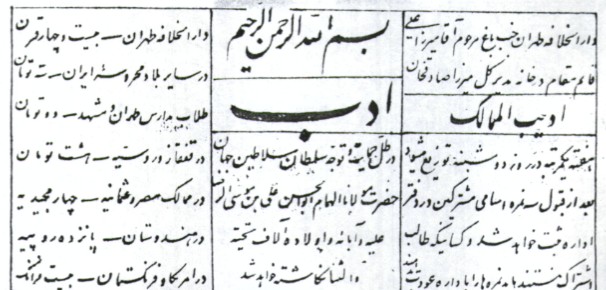 دارالخلافه طهران جنب باغ مرحوم آقا میرزا علی
قائم مقام دخانه مدیر کل میرزا صادقخان
ادیب الممالک
هفتهٔ یکمرتبه در روز دوشنبه توزیع میشود
بعد از قبول سه نمره اسامی مشترکین در دفتر
اداره ثبت خواهد شد و کسانیکه طالب
اشتراک نیستند باید نمره‌ها را باداره عودت دهند
بسم الله الرحمن الرحیم
ادب
در ظل حمایت و توجه سلطان سلاطین جهان
حضرت مولانا الهمام ابوالحسن علی بن موسی الرضا
علیه و آبائه و اولاده آلاف تحیته
والثنا نگاشته خواهد شد
دارالخلافه طهران ــ بیست و چهار قران
در سایر بلاد محروسه ایران ــ سه تومان
طلاب مدارس طهران و مشهد ــ دو تومان
در قفقاز و روسیه ــ هشت تومان
در ممالک مصر و عثمانیه ــ چهار مجیدیه
در هندوستان ــ پانزده روپیه
در امریکا و فرنگستان ــ بیست فرانک